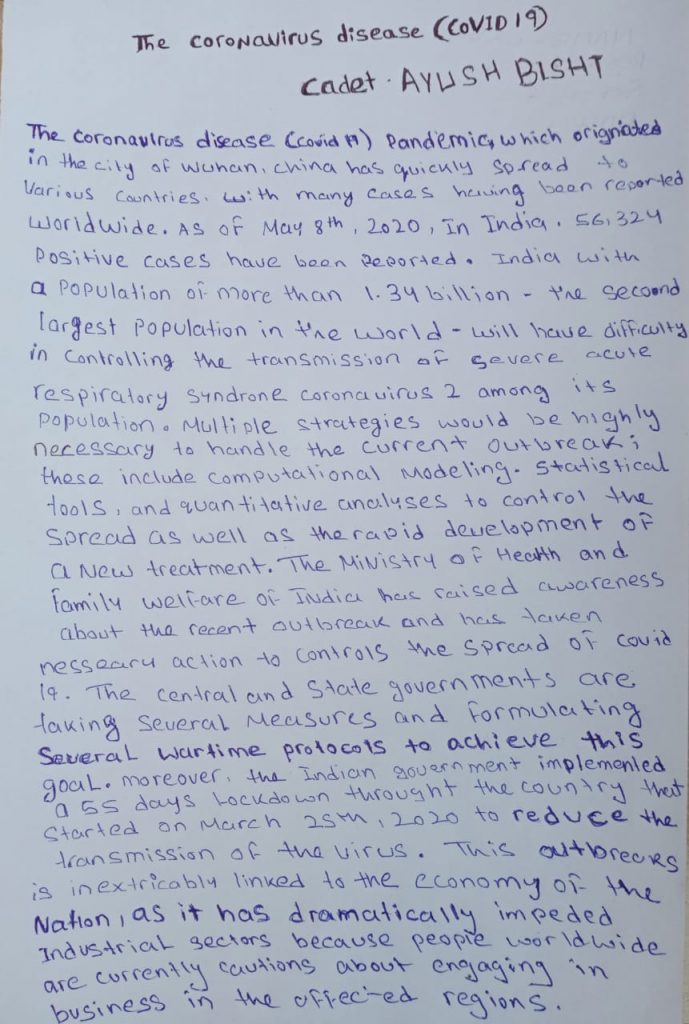 The coronavirus disease (COVID 19)
Cadet. AYUSH BISHT
The coronavirus disease (covid 19) Pandemic, which originated
in the city of wuhan, china has quickly spread to
Various Countries. with many cases having been reported
worldwide. As of May 8th, 2020, In India, 56,324
Positive cases have been Reported. India with
a Population of more than 1.34 billion - the second
largest Population in the world - will have difficulty
in Controlling the transmission of severe acute
respiratory Syndrone coronavirus 2 among its
population. Multiple strategies would be highly
necessary to handle the current outbreak;
these include computational Modeling. Statistical
tools, and quantitative analyses to control the
Spread as well as the rapid development of
a New treatment. The Ministry of Health and
family welfare of India has raised awareness
about the recent outbreak and has taken
nesseary action to Controls the Spread of Covid
19. The central and State governments are
taking Several Measures and formulating
Several wartime protocols to achieve this
goal. moreover, the Indian government implemented
a 55 days Lockdown throught the country that
Started on March 25th, 2020 to reduce the
transmission of the virus. This outbreaks
is inextricably linked to the economy of the
Nation, as it has dramatically impeded
Industrial sectors because people worldwide
are currently cautions about engaging in
business in the affected regions.